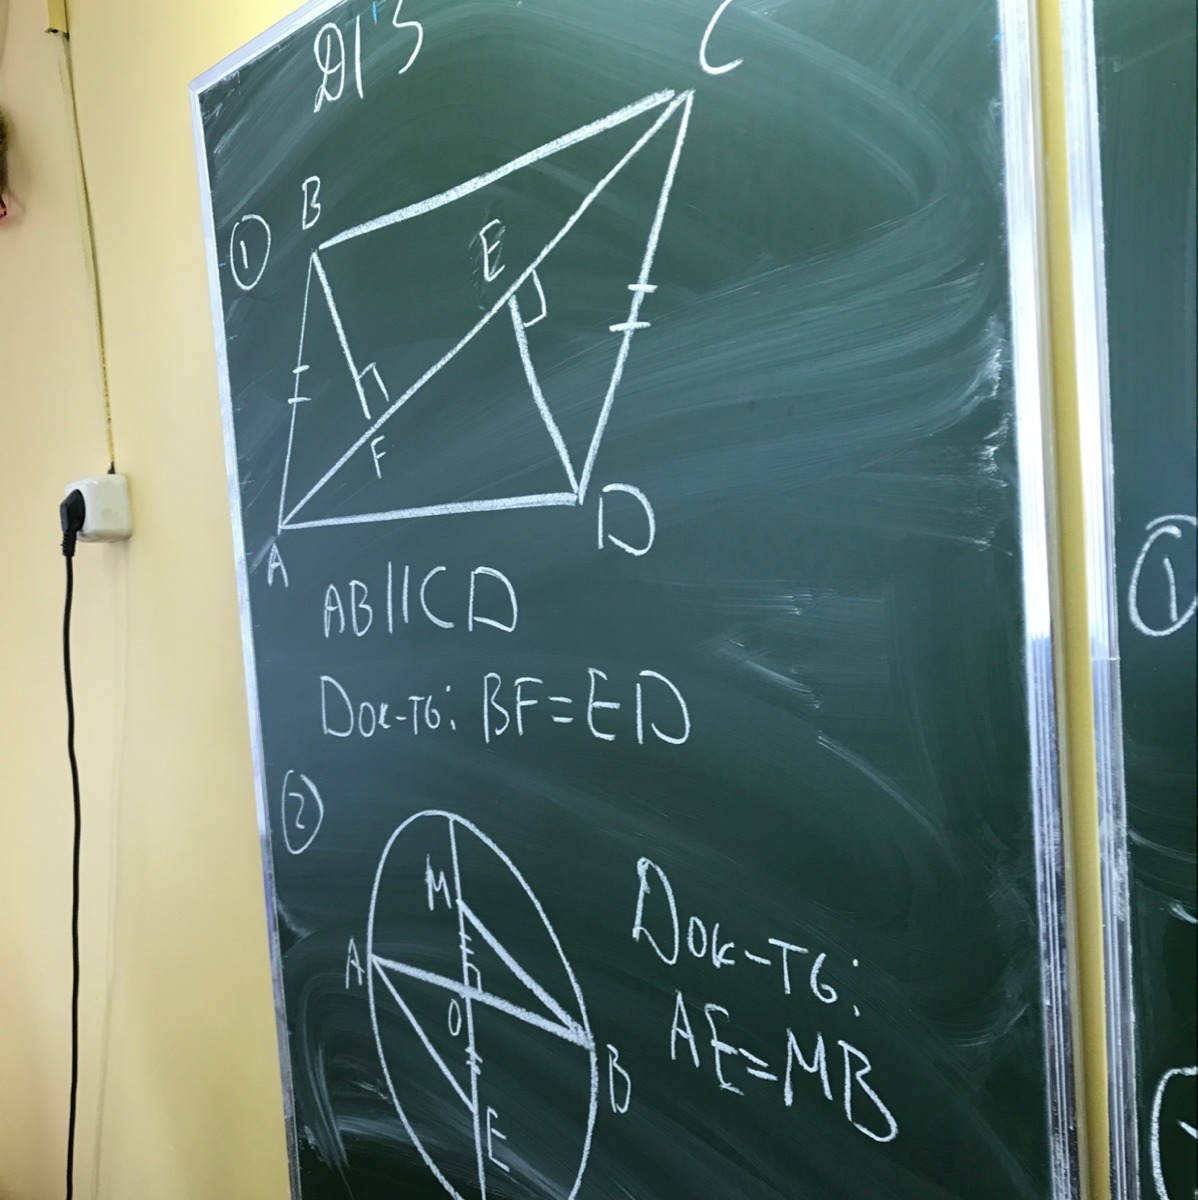 D1'3
C
①
B
E
F
A
D
AB||CD
Док-тв: BF=ED
②
M
A
O
B
E
Док-тв:
AE=MB
①